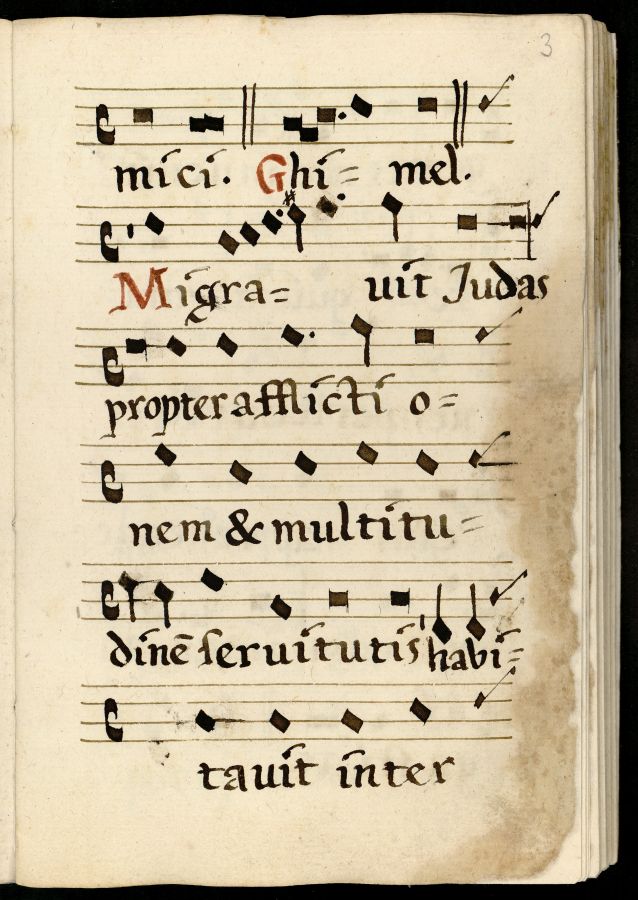 3
mici. Ghi= mel.
Migra= uit Judas
propter afflicti o=
nem & multitu=
dinē seruitutis habi=
tauit inter